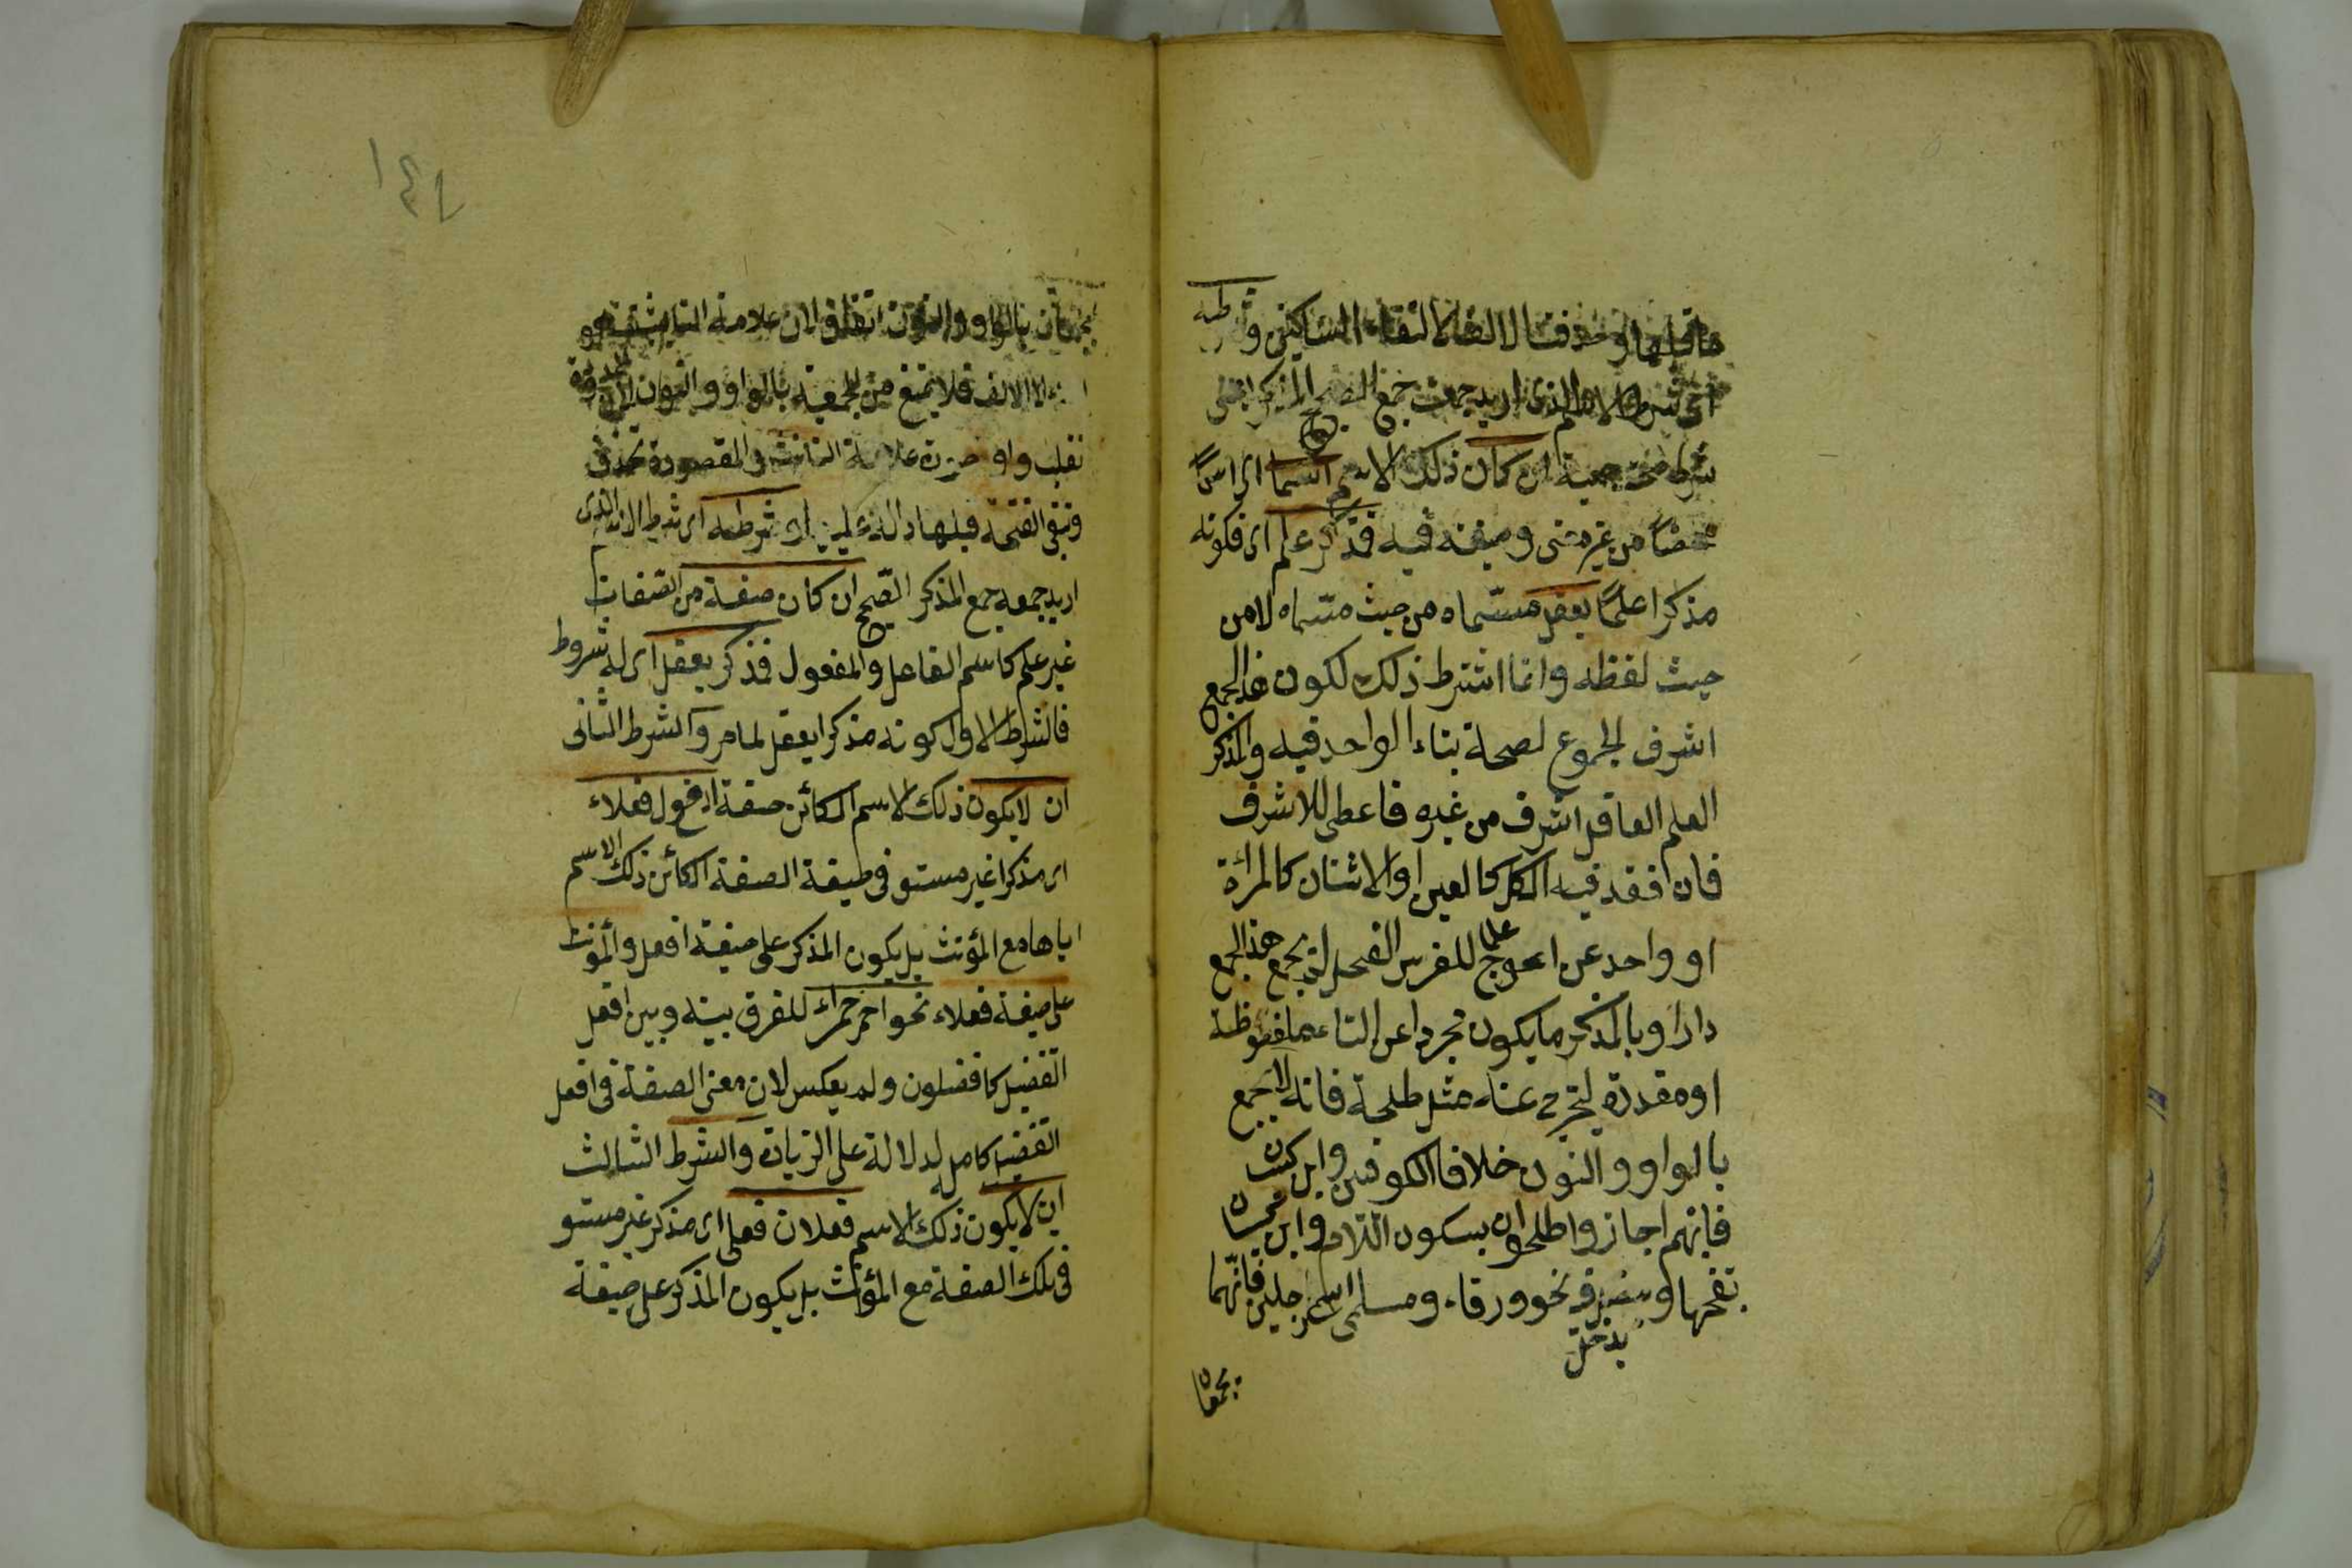 ما قبلها وحذفت الالف لالتقاء الساكنين وشرطه
اى شرط الاسم الذى اريد جمعه جمع الصحيح المذكر يعنى
شرط صحة جمعية ان كان ذلك الاسم اسما اى اسمًا
محضًا من غير معنى وصفة فيه فذكر علم اى فكونه
مذكرا علمًا يعقل مسمّاه من حيث مسمّاه لا من
حيث لفظه وانما اشترط ذلك لكون هذا الجمع
اشرف الجموع لصحة بناء الواحد فيه والمذكر
العلم العاقل اشرف من غيره فاعطى للاشرف
فان فقد فيه الكل كالعين او الاثنان كالمرأة
او واحد عن اعوج علما للفرس الفحل لم يجمع هذا الجمع
وبالمذكر ما يكون مجردا عن التاء ملفوظة
او مقدرة ليخرج عنه مثل طلحة فانه لا يجمع
بالواو والنون خلافا للكوفيين وابن كيسان
فانهم اجازوا طلحون بسكون اللام وابن كيسان
بفتحها ويدخل فيه نحو ورقاء وسلمى اسمى رجلين فانهما
يجمعان
١٤٦
يجمعان بالواو والنون اتفاقا لان علامة التانيث هو
الالف فلا يمنع من الجمعية بالواو والنون لان الممدودة
تقلب واوا صورة علامة التانيث والمقصورة تحذف
وتبقى الفتحة قبلها دالة عليها وشرطه اى شرط الاسم الذى
اريد جمعه جمع المذكر الصّحيح ان كان صفة من الصّفات
غير علم كاسم الفاعل والمفعول فذكر يعقل اى له شروط
فالشرط الاول كونه مذكرا يعقل لما مر والشرط الثانى
ان لا يكون ذلك الاسم الكائن صفة افعل فعلاء
اى مذكرا غير مستو فى صيغة الصفة الكائن ذلك الاسم
اياها مع المؤنث بل يكون المذكر على صيغة افعل والمؤنث
على صيغة فعلاء نحو احمر حمراء للفرق بينه وبين افعل
التفضيل كافضلون ولم يعكس لان معنى الصفة فى افعل
التفضيل كامل لدلالة على الزيادة والشرط الثالث
ان لا يكون ذلك الاسم فعلان فعلى اى مذكر غير مستو
فى تلك الصفة مع المؤنث بل يكون المذكر على صيغة